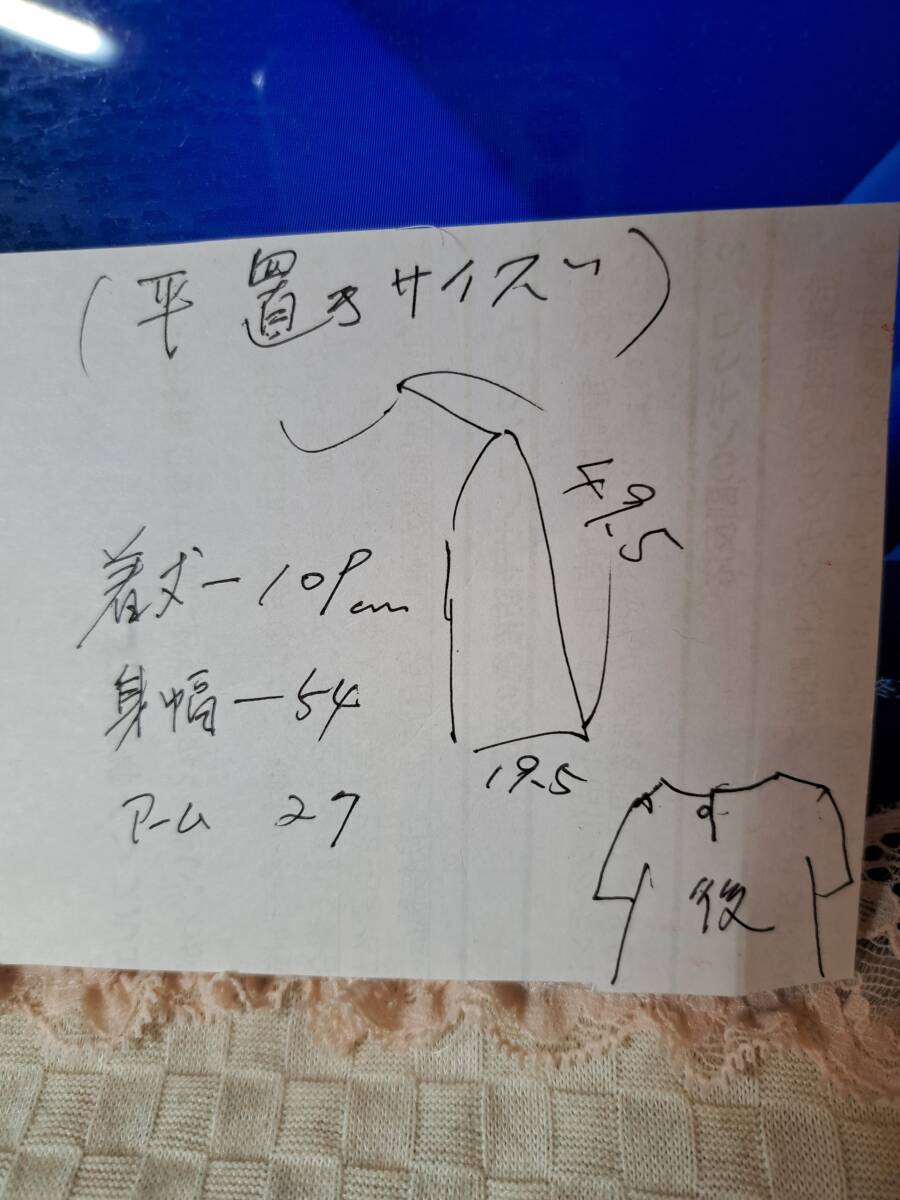 (平置きサイズ)
49.5
着丈ー109cm
身幅ー54
19.5
アーム 27
後